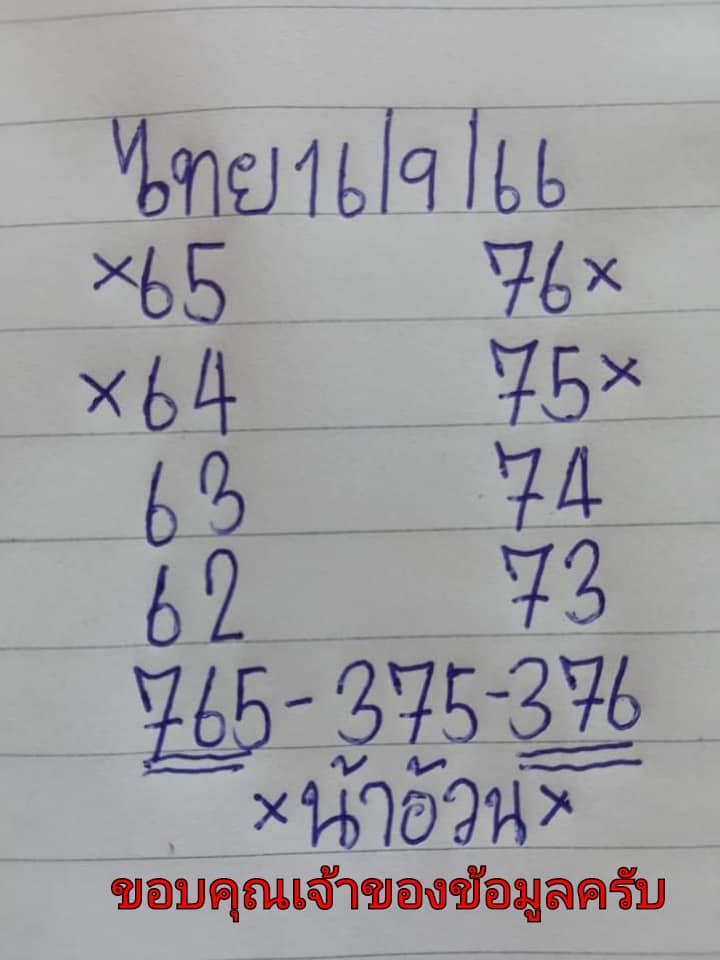 ไทย 16/9/66
×65 76×
×64 75×
63 74
62 73
765-375-376
×น้าอ้วน×
ขอบคุณเจ้าของข้อมูลครับ